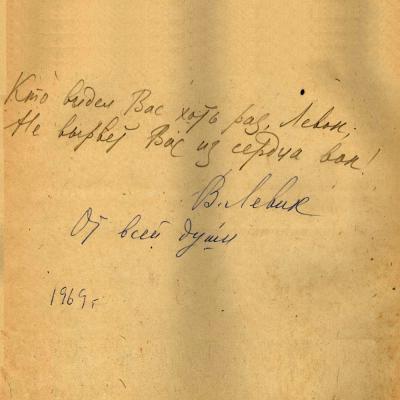 Кто видел Вас хоть раз, Левон,
Не вырвет Вас из сердца вон!
В. Левик
От всей души
1969 г